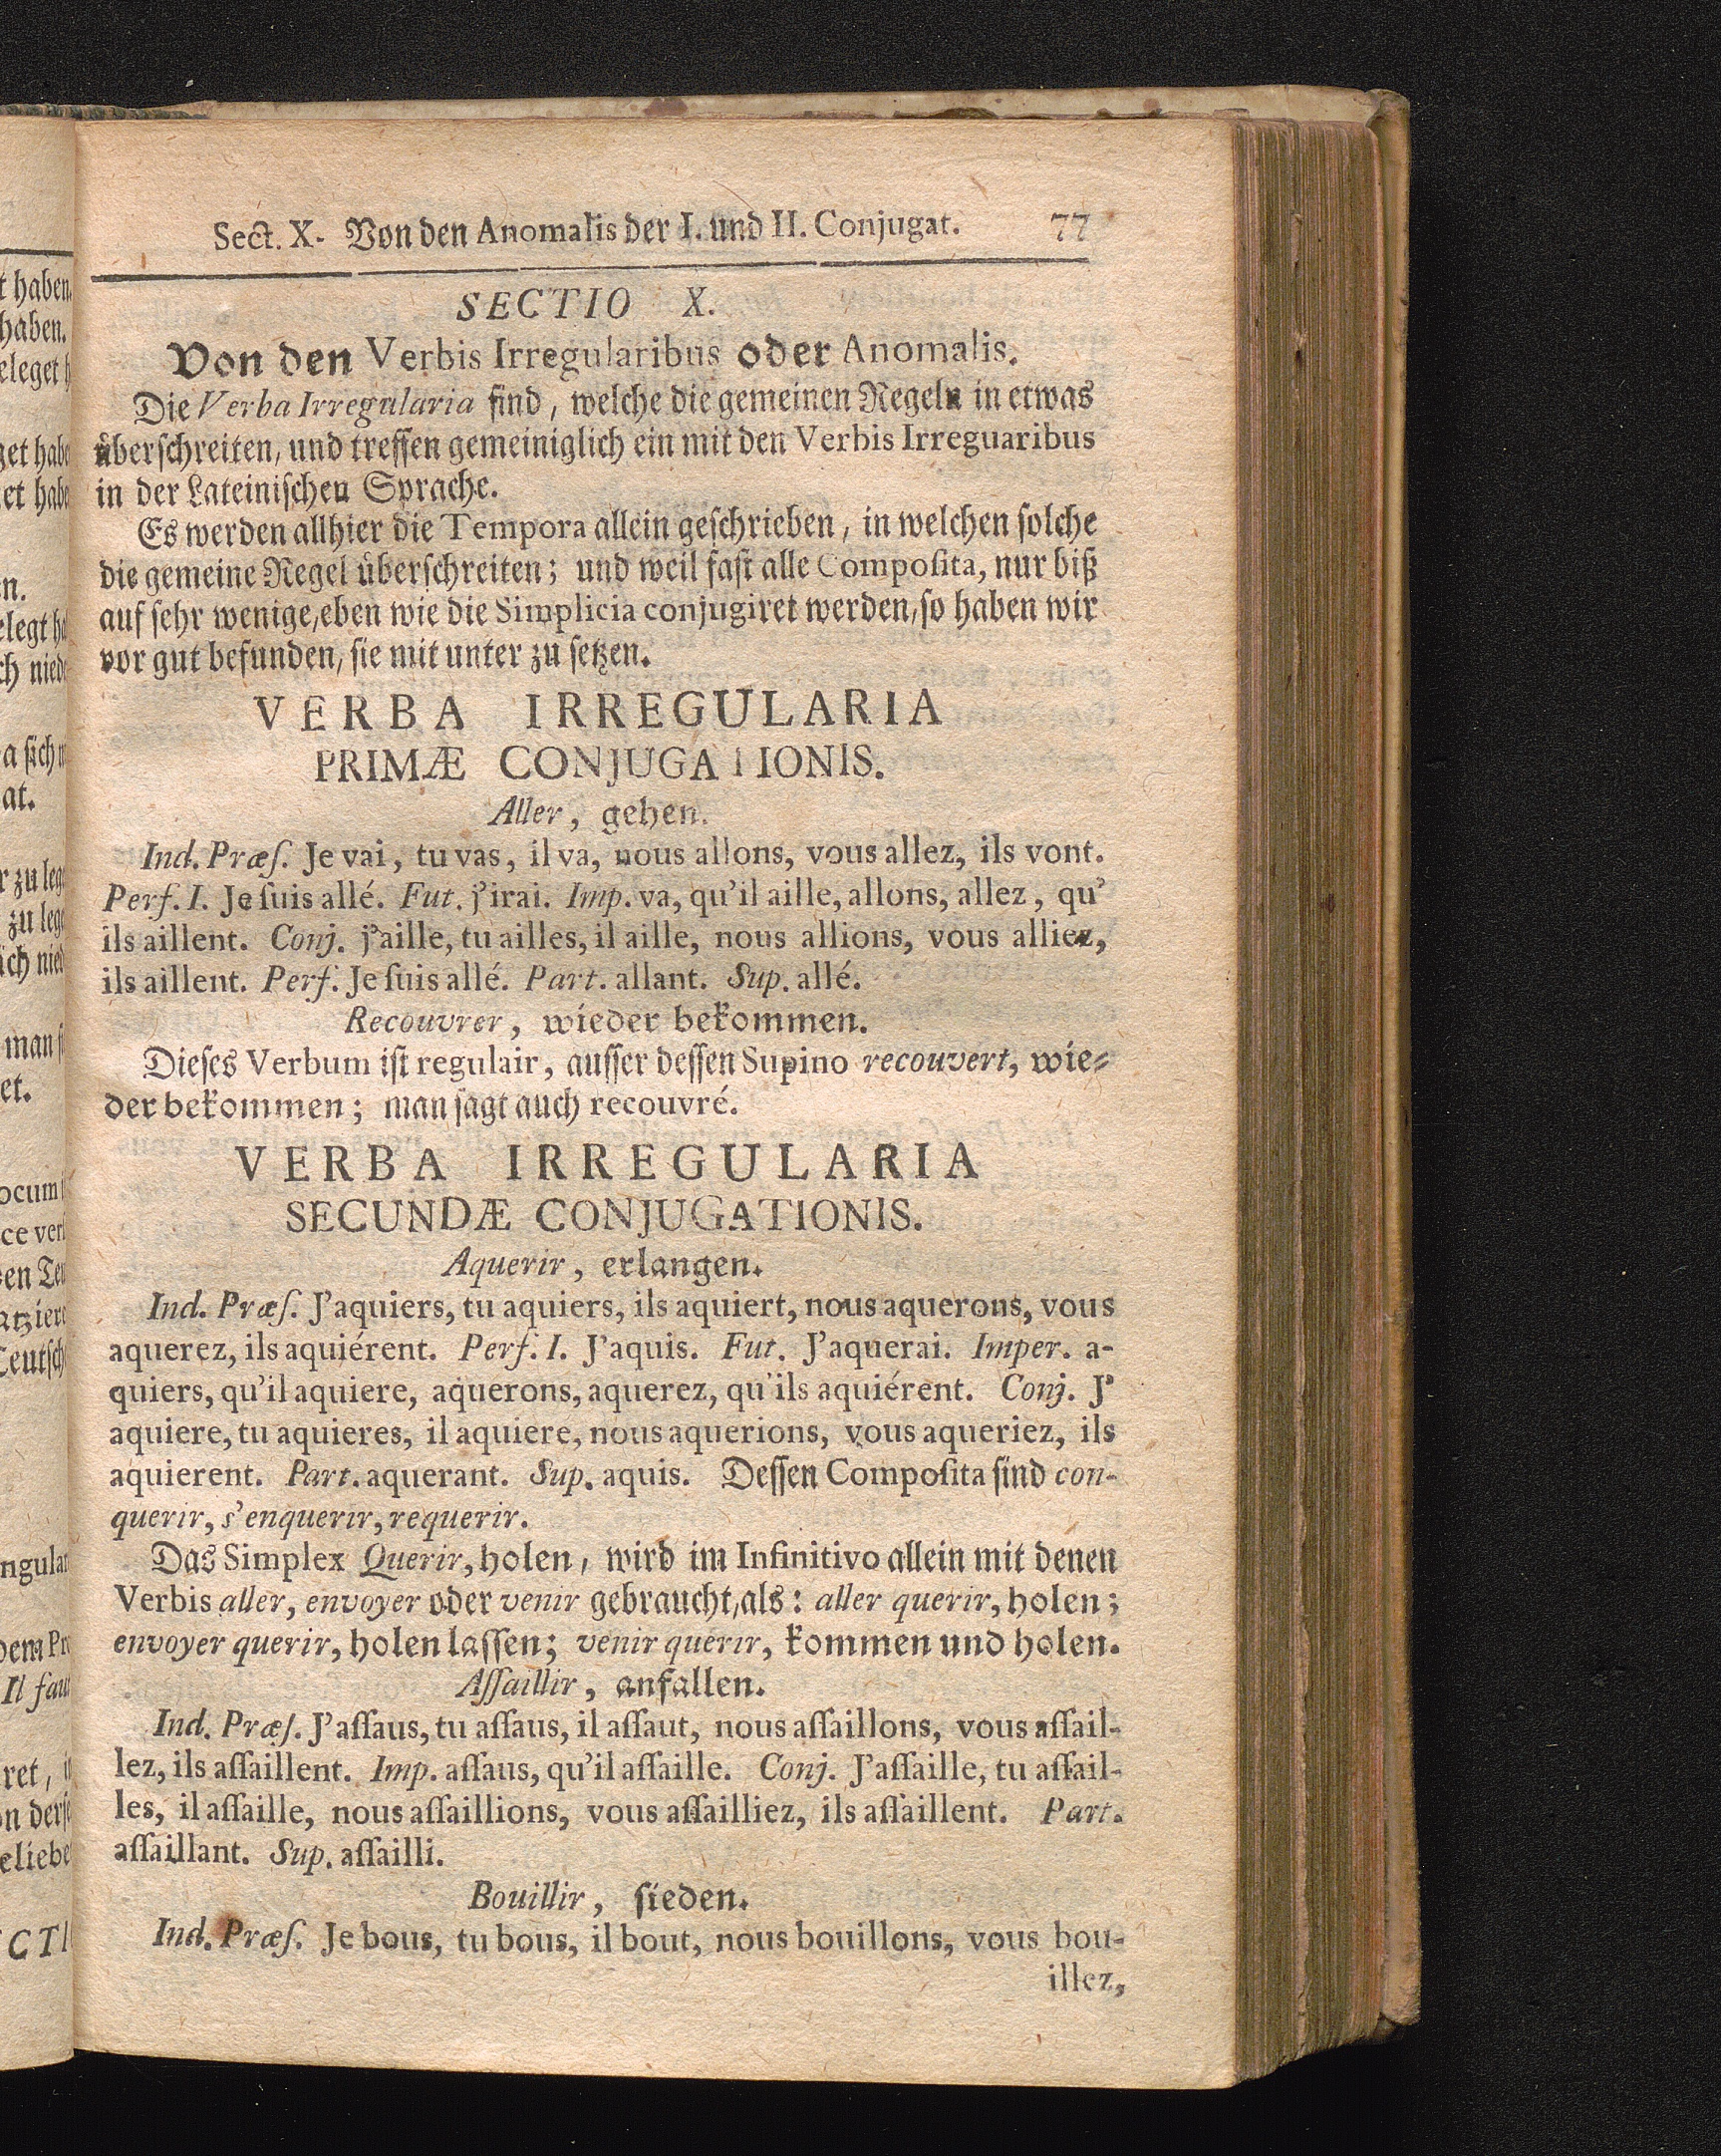 Sect. X. Von den Anomalis der I. und II. Conjugat. 77
SECTIO X.
Von den Verbis Irregularibus oder Anomalis.
Die Verba Irregularia sind, welche die gemeinen Regeln in etwas
uͤberschreiten, und treffen gemeiniglich ein mit den Verbis Irreguaribus
in der Lateinischen Sprache.
Es werden allhier die Tempora allein geschrieben, in welchen solche
die gemeine Regel uͤberschreiten; und weil fast alle Composita, nur biß
auf sehr wenige, eben wie die Simplicia conjugiret werden, so haben wir
vor gut befunden, sie mit unter zu setzen.
VERBA IRREGULARIA
PRIMÆ CONJUGATIONIS.
Aller, gehen.
Ind. Præſ. Je vai, tu vas, il va, nous allons, vous allez, ils vont.
Perf. I. Je ſuis allé. Fut. j'irai. Imp. va, qu'il aille, allons, allez, qu'
ils aillent. Conj. j'aille, tu ailles, il aille, nous allions, vous alliez,
ils aillent. Perf. Je ſuis allé. Part. allant. Sup. allé.
Recouvrer, wieder bekommen.
Dieses Verbum ist regulair, ausser dessen Supino recouvert, wie-
der bekommen; man sagt auch recouvré.
VERBA IRREGULARIA
SECUNDÆ CONJUGATIONIS.
Aquerir, erlangen.
Ind. Præſ. J'aquiers, tu aquiers, ils aquiert, nous aquerons, vous
aquerez, ils aquiérent. Perf. I. J'aquis. Fut. J'aquerai. Imper. a-
quiers, qu'il aquiere, aquerons, aquerez, qu'ils aquiérent. Conj. J'
aquiere, tu aquieres, il aquiere, nous aquerions, vous aqueriez, ils
aquierent. Part. aquerant. Sup. aquis. Dessen Compoſita sind con-
querir, s'enquerir, requerir.
Das Simplex Querir, holen, wird im Infinitivo allein mit denen
Verbis aller, envoyer oder venir gebraucht, als: aller querir, holen;
envoyer querir, holen lassen; venir querir, kommen und holen.
Aſſaillir, anfallen.
Ind. Præſ. J'aſſaus, tu aſſaus, il aſſaut, nous aſſaillons, vous aſſail-
lez, ils aſſaillent. Imp. aſſaus, qu'il aſſaille. Conj. J'aſſaille, tu aſſail-
les, il aſſaille, nous aſſaillions, vous aſſailliez, ils aſſaillent. Part.
aſſaillant. Sup. aſſailli.
Bouillir, sieden.
Ind. Præſ. Je bous, tu bous, il bout, nous bouillons, vous bou-
illez,